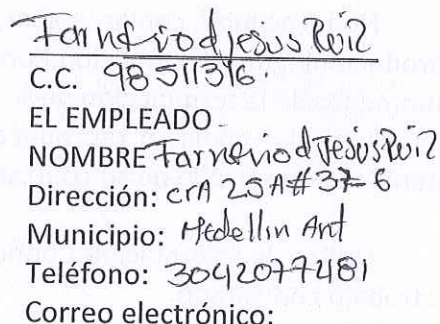 Farneviod jesus Ruiz
C.C. 98511316
EL EMPLEADO
NOMBRE Farneviod Jesus Ruiz
Dirección: crA 25A#37-6
Municipio: Medellin Ant
Teléfono: 3042077481
Correo electrónico: